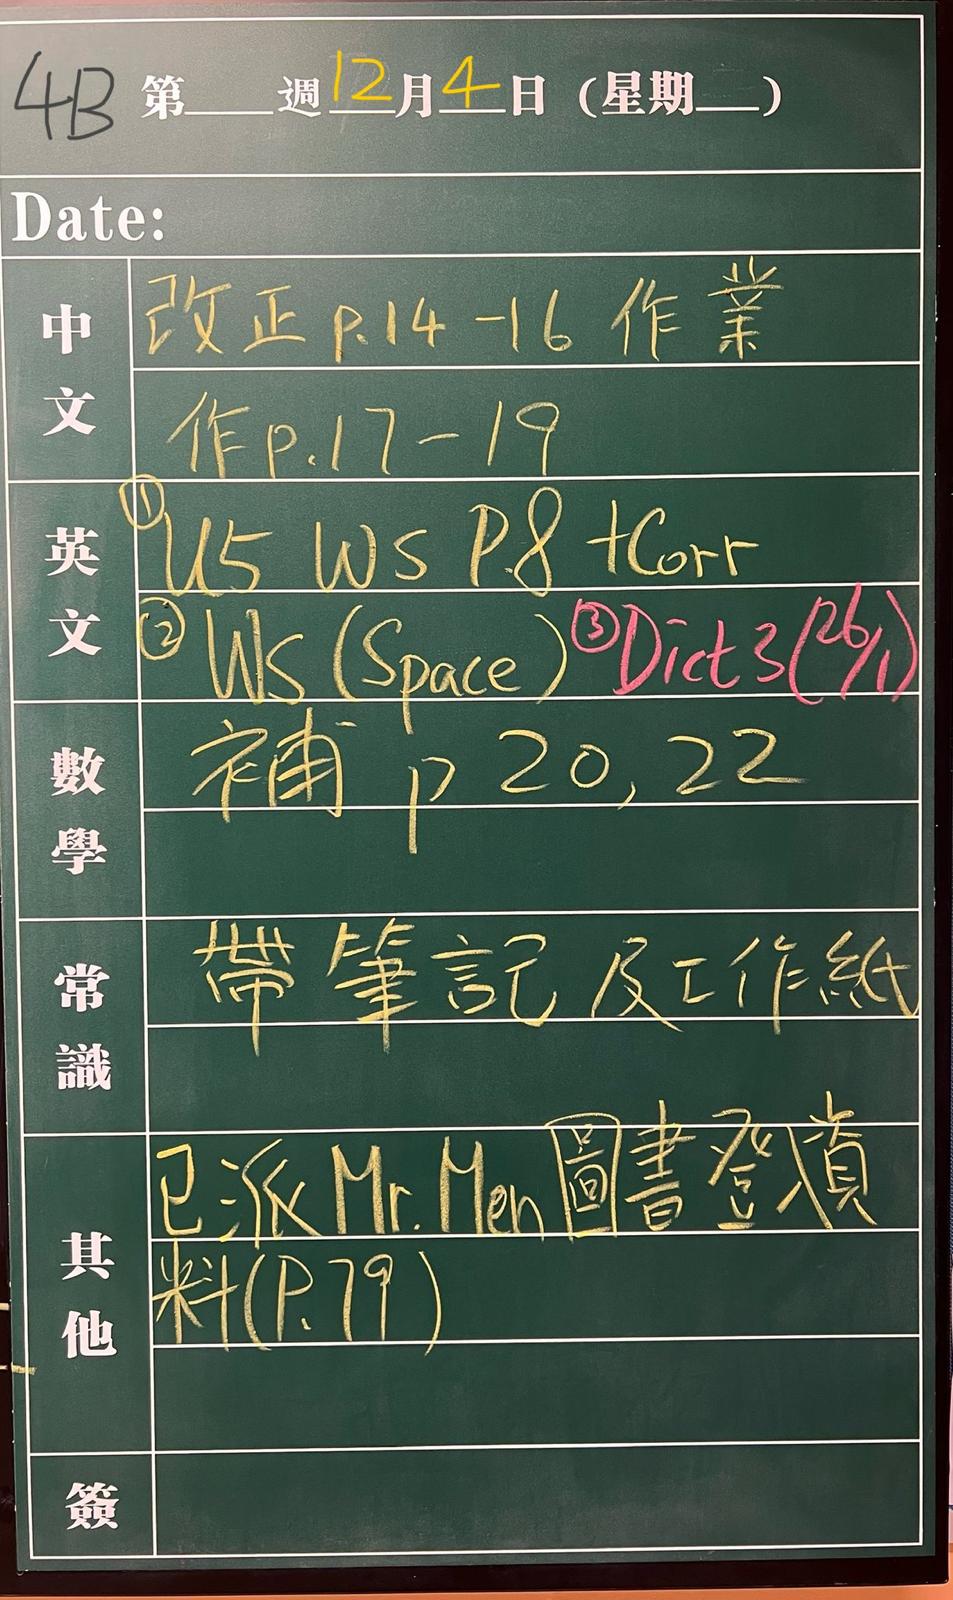 4B 第___週12月4日(星期__)
Date:
中文
改正p.14-16作業
作p.17-19
英文
① U5 WS P.8 +Corr
② WS (Space) ③ Dict 3 (26/1)
數學
補 p 20, 22
常識
帶筆記及工作紙
其他
已派Mr. Men圖書登
料(P.79)
簽